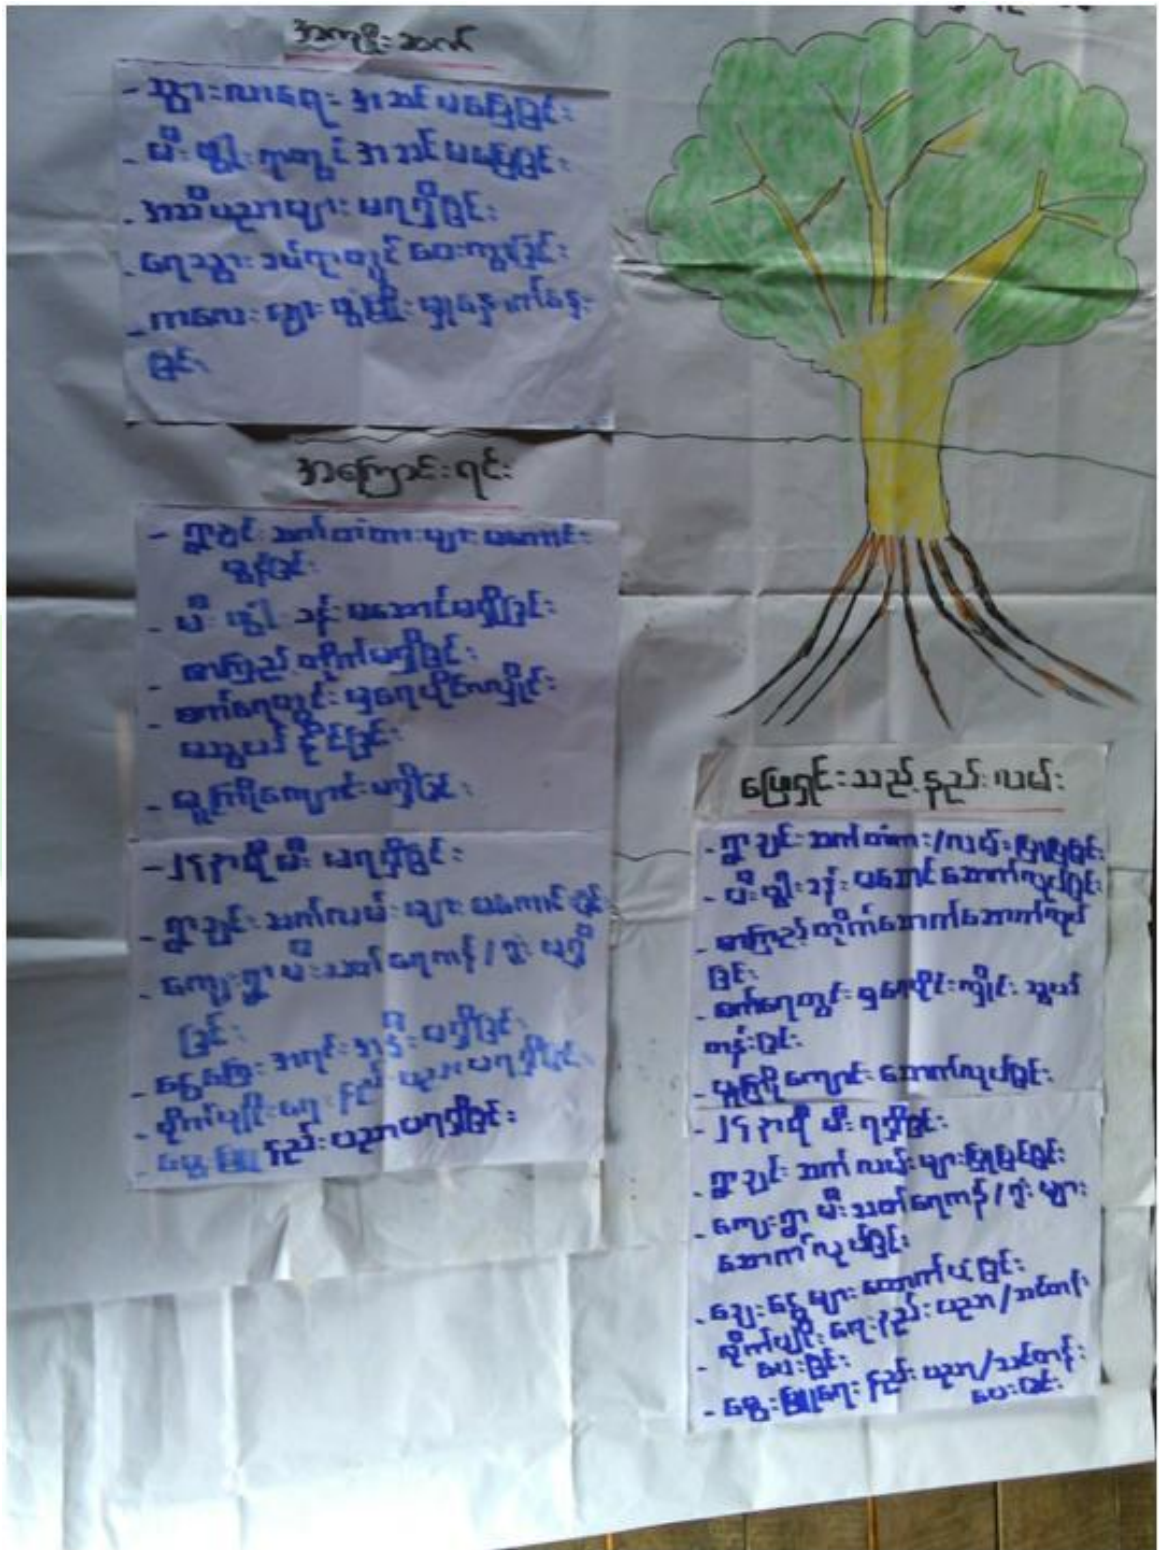 အကျိုးဆက်
- သွားလာရေး အဆင်မပြေခြင်း
- မီးဖွါးရာတွင် အဆင်မပြေခြင်း
- အသိပညာများ မရရှိခြင်း
- ရေသွားခပ်ရာတွင် ဝေးကွာခြင်း
- ကလေးများ ဖွံ့ဖြိုးမှုနှောက်နှေး
ခြင်း
အကြောင်းရင်း
- ရွာချင်းဆက်တံတားများ မကောင်း
မွန်ခြင်း
- မီးဖွါးခန်း မဆောင်မရှိခြင်း
- စာကြည့်တိုက်မရှိခြင်း
- စက်ရေတွင်းမှ ရေပိုက်လှိုင်း
မသွယ်နိုင်ခြင်း
- မူကြိုကျောင်းမရှိခြင်း
- ၂၄ နာရီ မီး မရရှိခြင်း
- ရွာချင်းဆက်လမ်းများ မကောင်းခြင်း
- ကျေးရွာ မီးသတ်ရေကန်/ရုံး မရှိ
ခြင်း
- ငွေကြေး အရင်းအနှီး မရှိခြင်း
- စိုက်ပျိုးရေး နည်းပညာ မရရှိခြင်း
- မွေးမြူ နည်းပညာမရရှိခြင်း
ဖြေရှင်းသည့်နည်းလမ်း
- ရွာချင်းဆက်တံတား/လမ်းပြုပြင်ခြင်း
- မီးဖွါးခန်း မဆောင် ဆောက်လုပ်ခြင်း
- စာကြည့်တိုက်ဆောက်ဆောက်လုပ်
ခြင်း
- စက်ရေတွင်းမှ ရေပိုင်းလှိုင်း သွယ်
တန်းခြင်း
- မူကြိုကျောင်း ဆောက်လုပ်ခြင်း
- ၂၄ နာရီ မီး ရရှိခြင်း
- ရွာချင်းဆက် လမ်းများပြုပြင်ခြင်း
- ကျေးရွာ မီးသတ်ရေကန်/ရုံးများ
ဆောက်လုပ်ခြင်း
- ချေးငွေများထောက်ပံ့ခြင်း
- စိုက်ပျိုးရေးနည်းပညာ/သင်တန်း
ပေးခြင်း
- မွေးမြူရေး နည်းပညာ/သင်တန်း
ပေးခြင်း